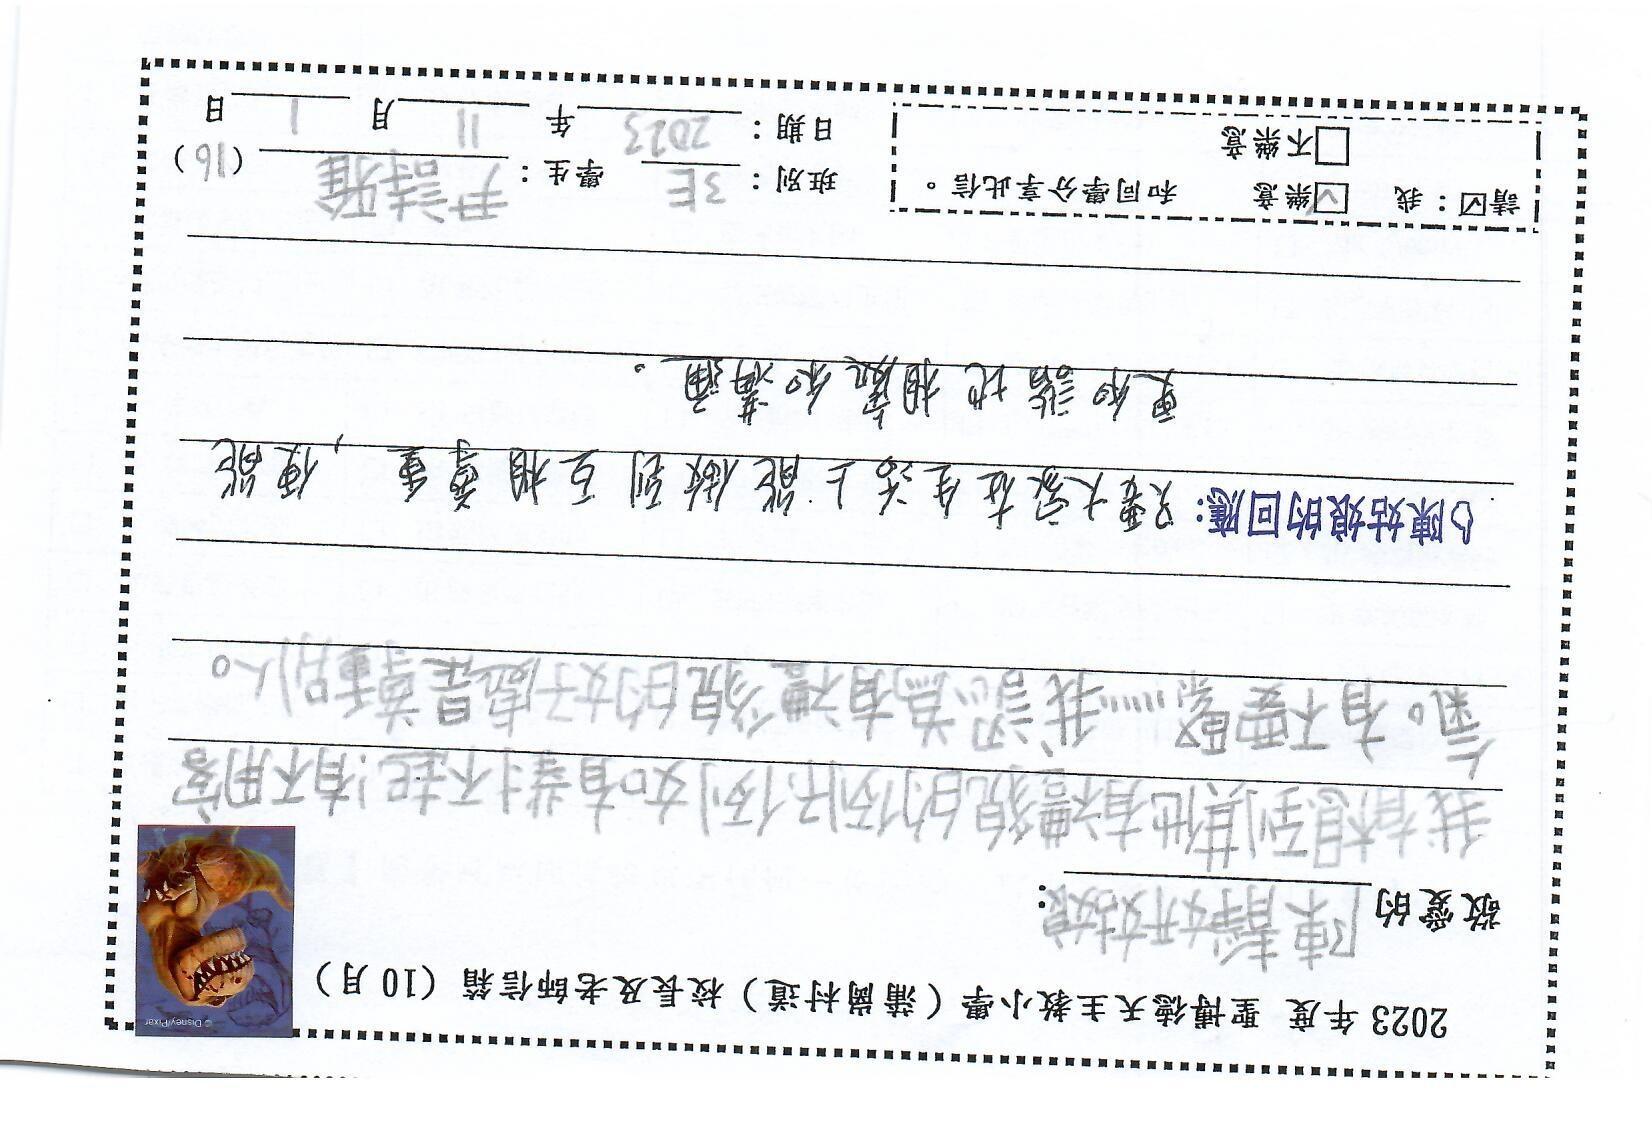 2023 年度 聖博德天主教小學（蒲崗村道）校長及老師信箱（10 月）
© Disney/Pixar
敬愛的 陳靜妍姑娘：
我有想到其他有禮貌的例子,例如有對不起,有不用客
氣。有不要緊……我認為有禮貌的好處是尊重別人。
陳姑娘的回應：只要大家在生活上能做到互相尊重，便能
更和諧地相處和溝通。
請☑：我 ☑樂意 和同學分享此信。
□不樂意
班別：3E 學生：尹詩雅（16）
日期：2023 年 11 月 1 日